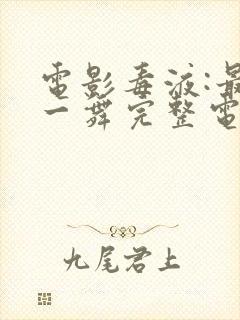 電影毒液:最
一舞完整電
九尾君上